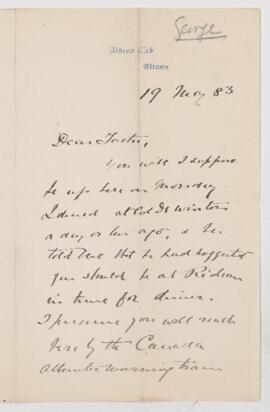 George
Rideau Club
Ottawa
19 May 83
Dear Foster,
You will I suppose
be up here on Monday.
I dined at Col De Winton's
a day or two ago, & he
told me that he had suggested
you should be at Rideau
in time for dinner.
I presume you will reach
here by the Canada
Atlantic morning train